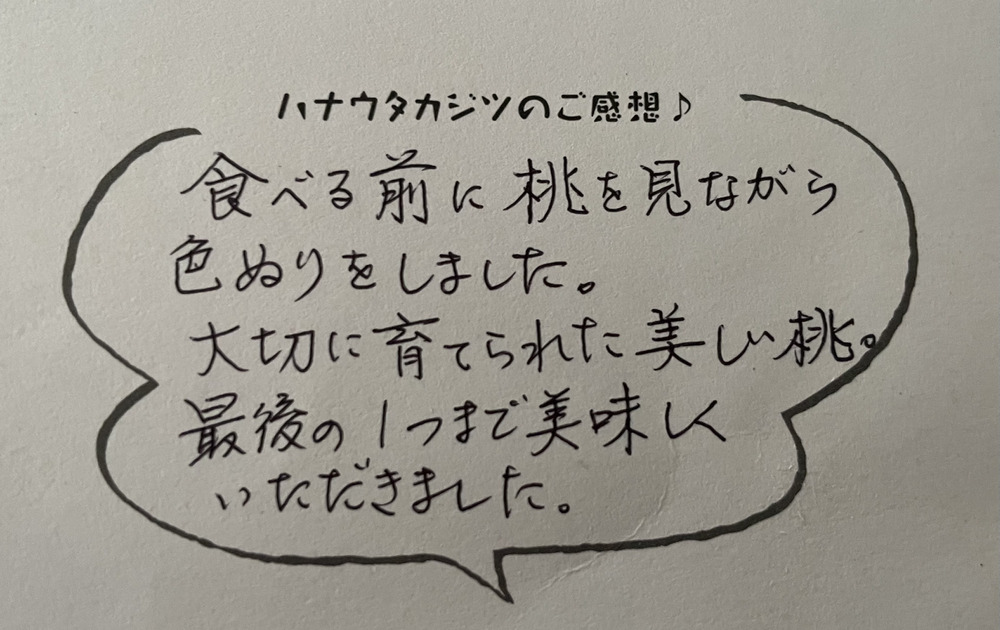 ハナウタカジツのご感想♪
食べる前に桃を見ながら
色ぬりをしました。
大切に育てられた美しい桃。
最後の1つまで美味しく
いただきました。